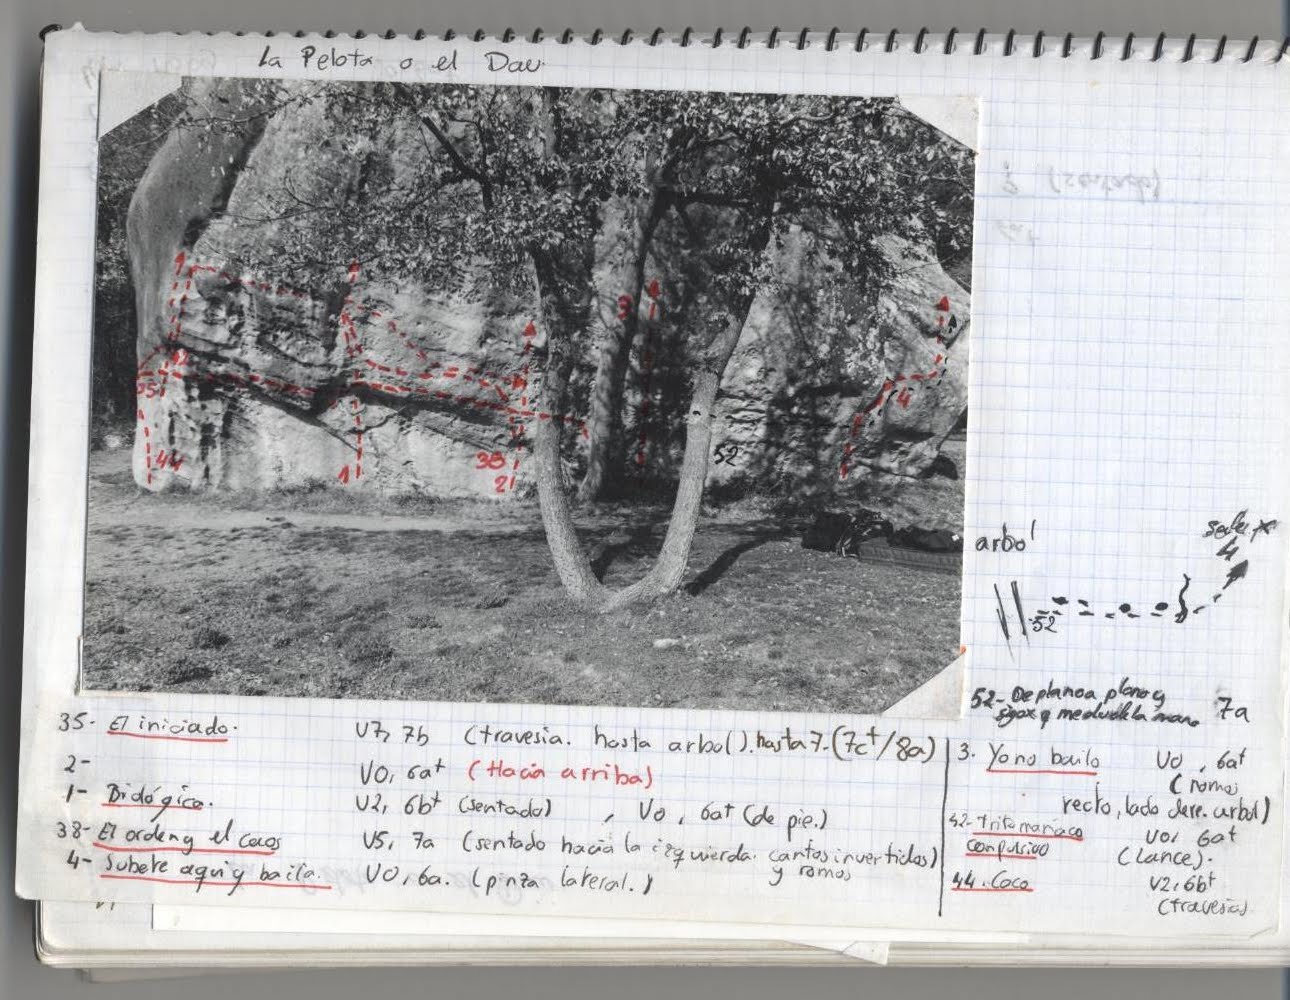 La Pelota o el Dau
3
35
44
1
38
2
52
4
arbol
4
52
52- De plano a plano y
sigo x q me duele la mano 7a
35- El iniciado. V7, 7b (travesia. hasta arbol). hasta 7. (7c+/8a)
2- V0, 6a+ (Hacia arriba)
1- Bidógica. V2, 6b+ (sentado) , V0, 6a+ (de pie.)
38- El orden y el caos V5, 7a (sentado hacia la izquierda. cantos invertidos)
y romos
4- Subete aqui y baila. V0, 6a. (pinza lateral.)
3. Yo no bailo V0, 6a+
(romo
recto, lado dere. arbol)
42- V0, 6a+
compulsivo (Lance).
44. Coco V2, 6b+
(travesia)